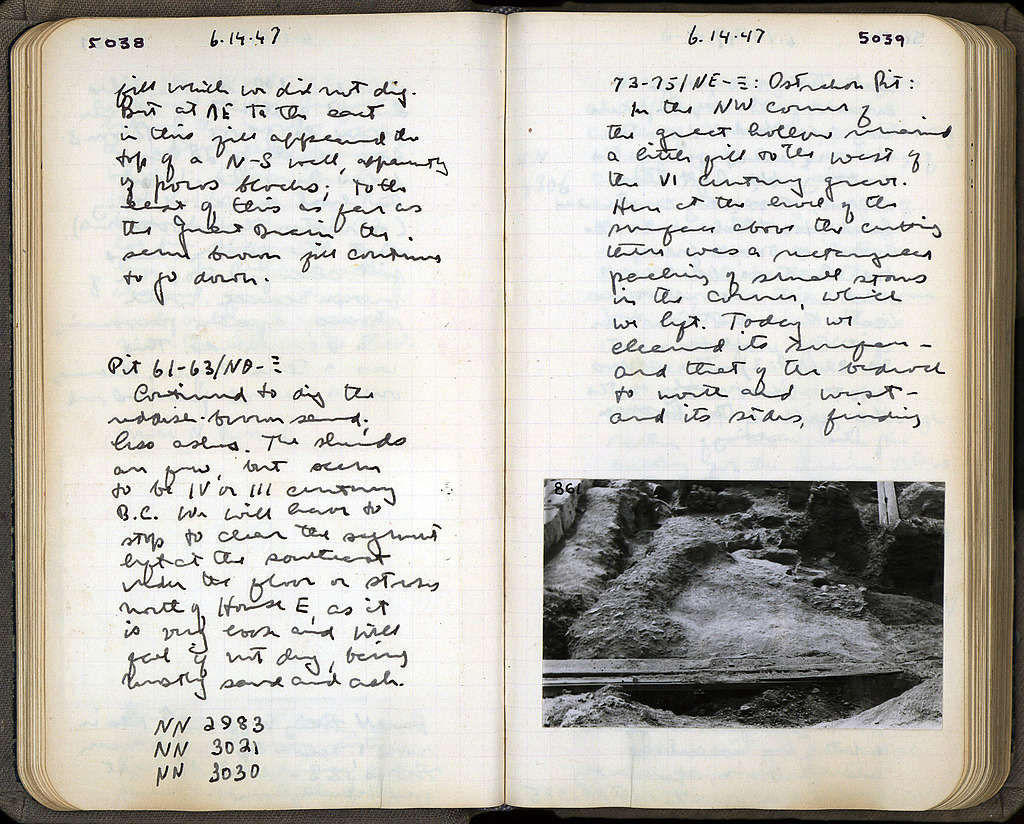 5038
6.14.47
fill which we did not dig.
But at ΛE to the east
in this fill appeared the
top of a N-S wall, apparently
of poros blocks; to the
east of this as far as
the Great Drain the
same brown fill continues
to go down.
Pit 61-63/ΝΘ-Ξ
Continued to dig the
reddish-brown sand.
Also ashes. The sherds
are few, but seem
to be IV or III century
B.C. We will have to
stop to clear the segment
left at the southeast
under the floor or stroses
north of House E, as it
is very loose and will
fall if not dug, being
mostly sand and ash.
NN 2983
NN 3021
NN 3030
6.14.47
5039
73-75/ΝΕ-Ξ: Ostrakon Pit:
In the NW corner of
the great hollow remained
a little fill to the west of
the VI century grave.
Here at the level of the
surface above the cutting
there was a rectangular
packing of small stones
in the corner, which
we left. Today we
cleaned its surface -
and that of the bedrock
to north and west -
and its sides, finding
861